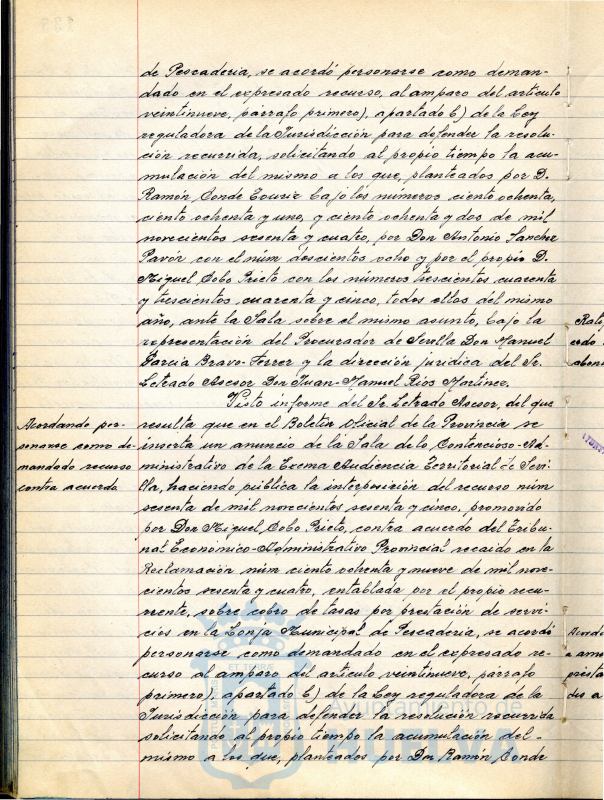 de Pescaderia, se acordó personarse como deman-
dado en el expresado recurso, al amparo del articulo
veintinueve, párrafo primero), apartado b) de la Ley
reguladora de la Jurisdicción para defender la resolu-
ción recurrida, solicitando al propio tiempo la acu-
mulación del mismo a los que, planteados por D.
Ramón Conde bajo los números ciento ochenta,
ciento ochenta y uno, y ciento ochenta y dos de mil
novecientos sesenta y cuatro, por Don Antonio Sanchez
Pavón con el núm doscientos ocho y por el propio D.
Miguel Cobo Prieto con los números trescientos cuarenta
y trescientos cuarenta y cinco, todos ellos del mismo
año, ante la Sala sobre el mismo asunto, bajo la
representación del Procurador de Sevilla Don Manuel
Garcia Bravo-Ferrer y la dirección juridica del Sr.
Letrado Asesor Don Juan-Manuel Rios Martinez.
Visto informe del Sr. Letrado Asesor, del que
Acordando per-
sonarse como de-
mandado recurso
contra acuerdo
resulta que en el Boletin Oficial de la Provincia se
inserta un anuncio de la Sala de lo Contencioso-Ad-
ministrativo de la Excma Audiencia Territorial de Sevi-
lla, haciendo pública la interposición del recurso núm
sesenta de mil novecientos sesenta y cinco, promovido
por Don Miguel Cobo Prieto, contra acuerdo del Tribu-
nal Económico-Administrativo Provincial recaido en la
Reclamación núm ciento ochenta y nueve de mil nove-
cientos sesenta y cuatro, entablada por el propio recu-
rrente, sobre cobro de tasas por prestación de servi-
cios en la Lonja Municipal de Pescaderia, se acordó
personarse como demandado en el expresado re-
curso al amparo del articulo veintinueve, párrafo
primero), apartado b) de la Ley reguladora de la
Jurisdicción para defender la resolución recurrida
solicitando al propio tiempo la acumulación del-
mismo a los que, planteados por Don Ramón Conde
Ayuntamiento de
HUELVA